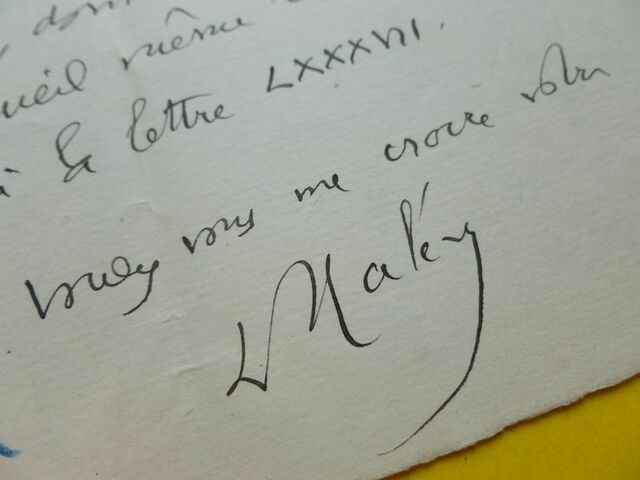 dont
ueil même
à la lettre LXXXVII.
voulez vous me croire votre
Maléry